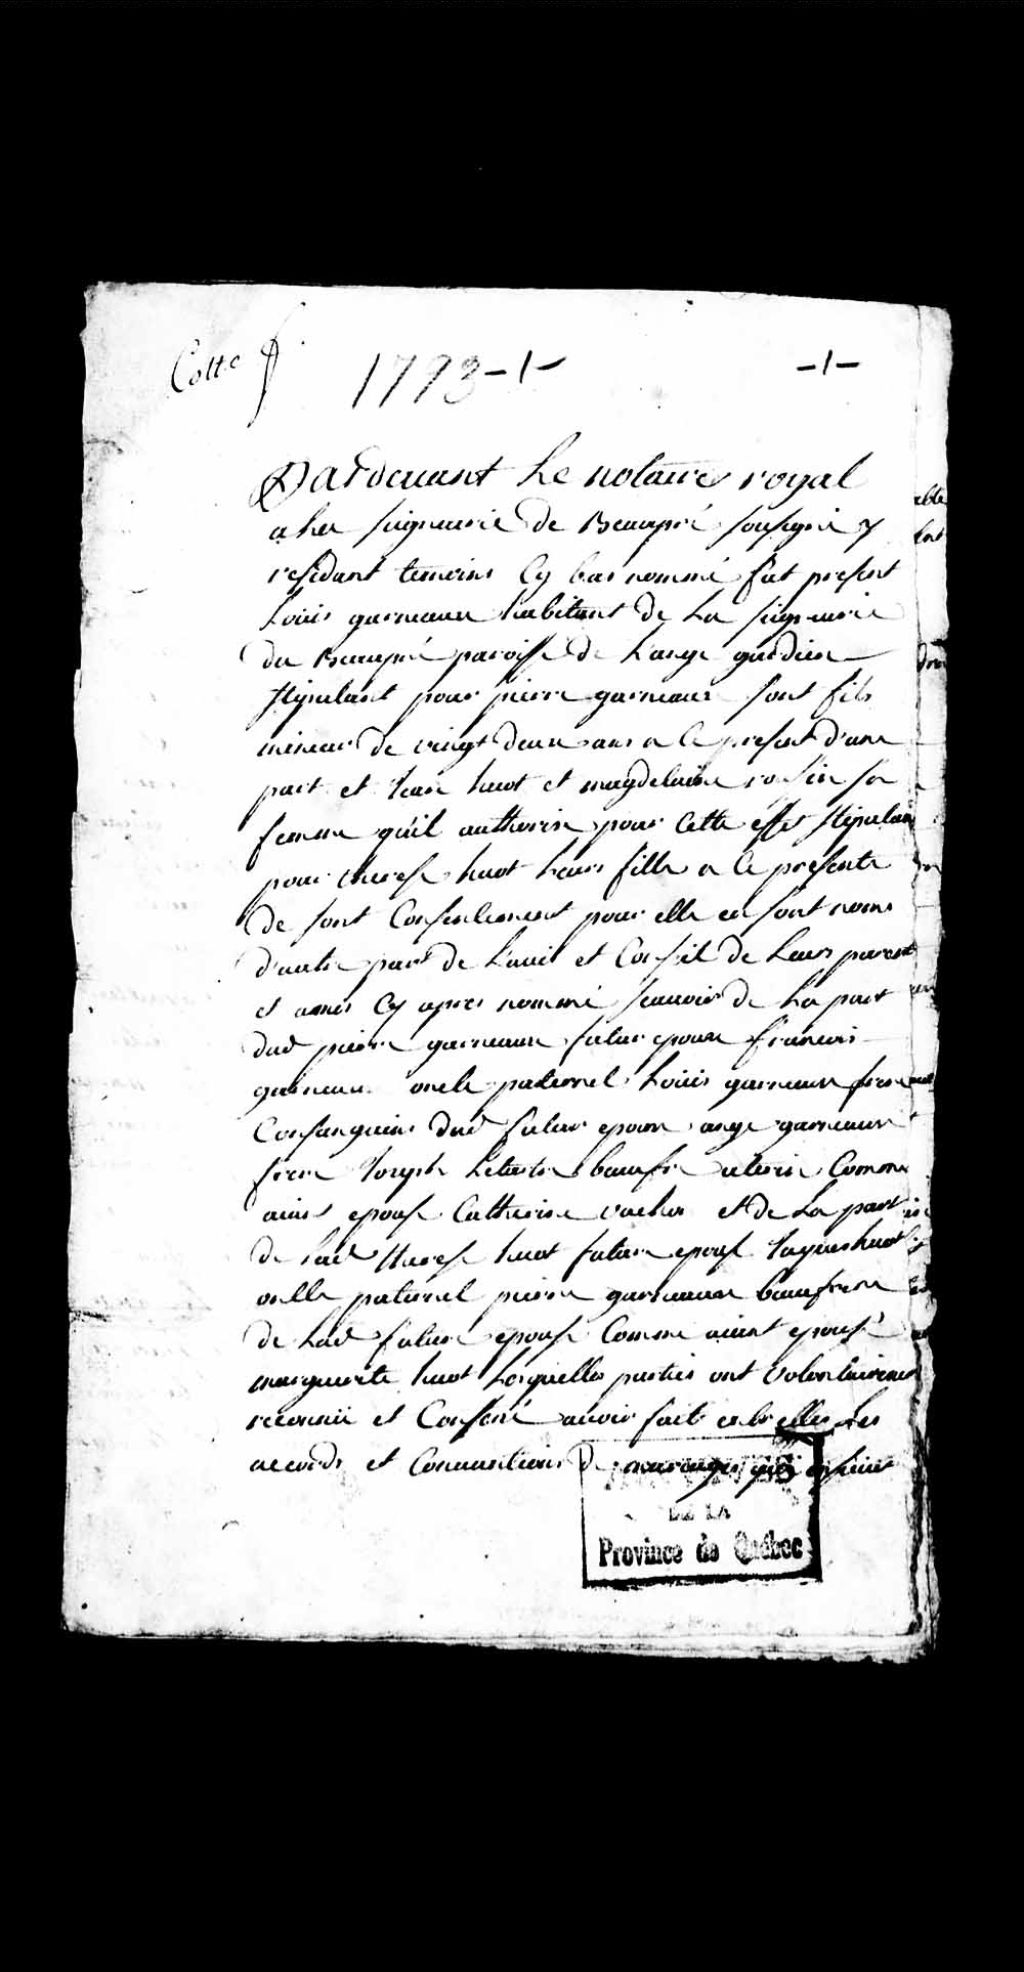 Cotte
1793-1- -1-
Pardevant Le notaire royal
a La seigneurie de Beaupré sousigné y
residant temoins Cy bas nommé fut present
Louis garneaux habitant de La seigneurie
de Beaupré paroisse de L'ange gardien
stipulant pour pierre garneaux sont fils
mineur de vingt deux ans a Ce present d'une
part et Jean huot et magdelaine roussin sa
femme qu'il authorise pour Cette effet stipulant
pour therese huot Leurs fille a Ce presente
de sont Consentement pour elle en sont nom
d'autre part de L'avis et Conseil de Leurs parent
et amis Cy apres nommé scauoir de La part
dud pierre garneaux futur epoux francois
garneaux oncle paternel Louis garneaux frere
Consanguin dud futur epoux ange garneaux
frere Joseph Letartre beaufre uterin Comme
aiant epousé Catherine vachon et de La part
de Lad therese huot future epouse Jaques huot
onclle paternel pierre garneaux beaufrere
de Lad future epouse Comme aiant epousé
marguerite huot Lesquelles parties ont volontairement
reconnu et Confessé auoir fait entre elles Les
accords et Conuentions de mariages qui ensuiut
DE LA
Province de Québec